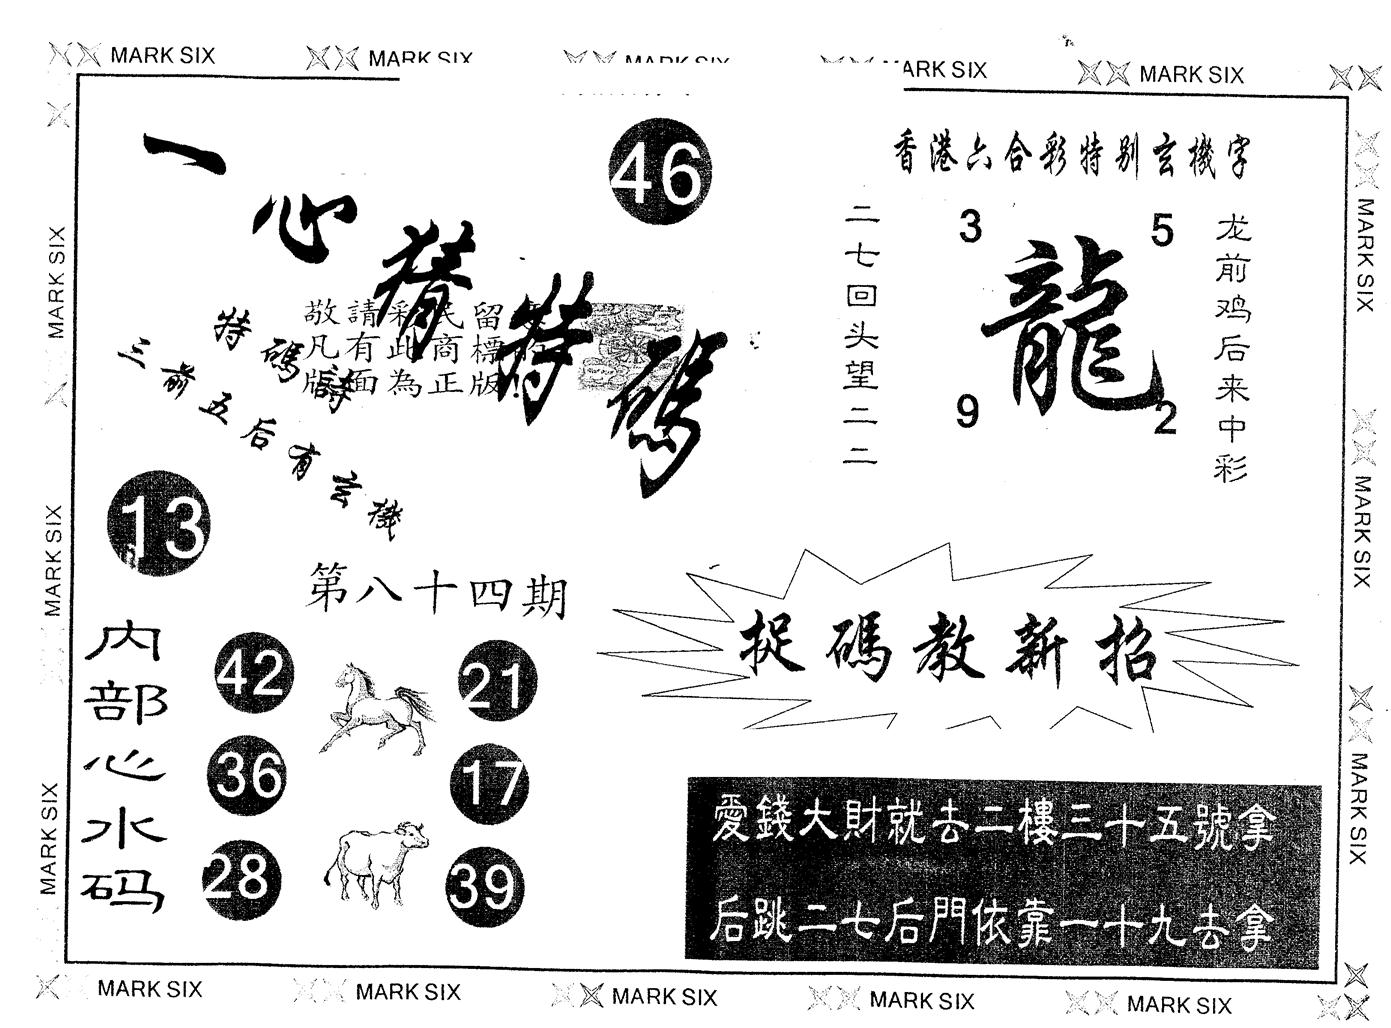 MARK SIX MARK SIX MARK SIX ARK SIX MARK SIX
一心猜特碼
46
香港六合彩特别玄機字
敬請彩民留意
凡有此商標的
版面為正版!
特碼詩
三前五后有玄機
二七回头望二二
3 5
龍
9 2
龙前鸡后来中彩
13
第八十四期
内部心水码
42 21
36 17
28 39
捉碼教新招
愛錢大財就去二樓三十五號拿
后跳二七后門依靠一十九去拿
MARK SIX
MARK SIX
MARK SIX
MARK SIX
MARK SIX
MARK SIX
MARK SIX MARK SIX MARK SIX MARK SIX MARK SIX